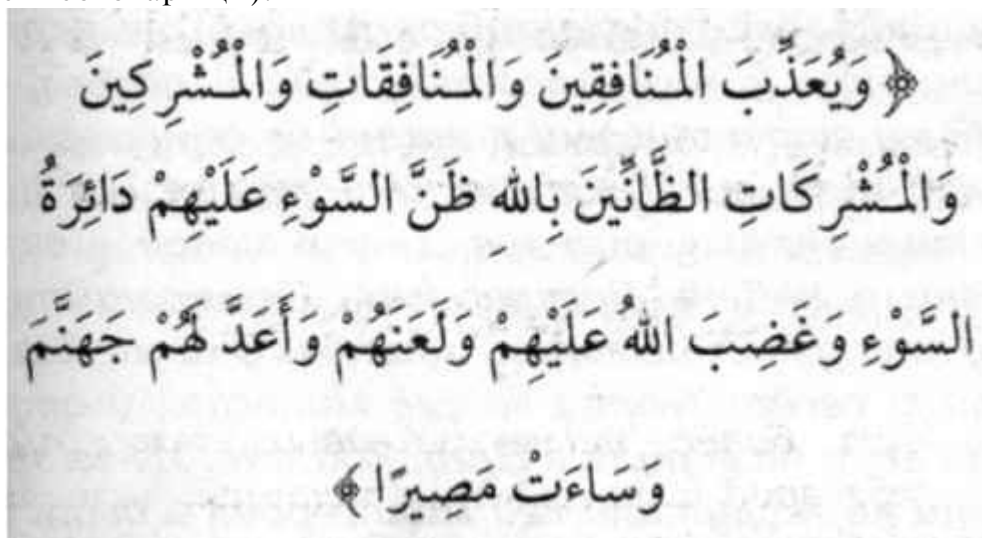 ﴿ وَيُعَذِّبَ الْمُنَافِقِينَ وَالْمُنَافِقَاتِ وَالْمُشْرِكِينَ
وَالْمُشْرِكَاتِ الظَّانِّينَ بِالله ظَنَّ السَّوْءِ عَلَيْهِمْ دَائِرَةُ
السَّوْءِ وَغَضِبَ اللهُ عَلَيْهِمْ وَلَعَنَهُمْ وَأَعَدَّ لَهُمْ جَهَنَّمَ
وَسَاءَتْ مَصِيرًا ﴾